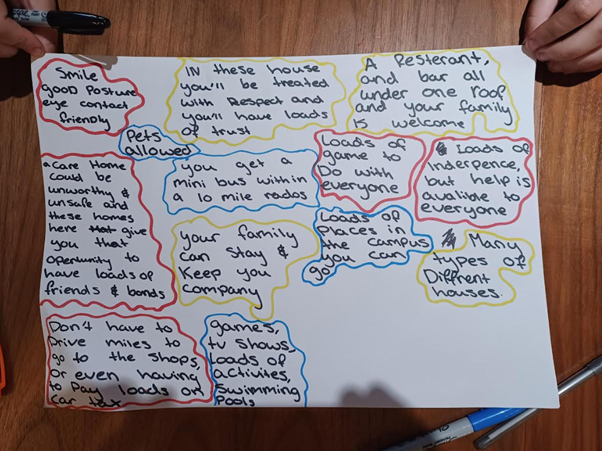 Smile
good Posture
eye contact
friendly
IN these house
you'll be treated
with Respect and
you'll have loads
of trust
A Resterant,
and bar all
under one roof
and your family
is welcome
Pets
allowed
you get a
mini bus within
a 10 mile rados
Loads of
game to
Do with
everyone
Loads of
inderpence,
but help is
avalible to
everyone
a Care Home
could be
unworthy &
unsafe and
these homes
here that give
you that
opertunity to
have loads of
friends & bonds
your family
can stay &
keep you
company
Loads of
places in
the campus
you can
go
Many
types of
Diffrent
houses.
Don't have to
Drive miles to
go to the shops,
or even having
to Pay loads on
car tax
games,
tv shows,
loads of
activites,
swimming
pools